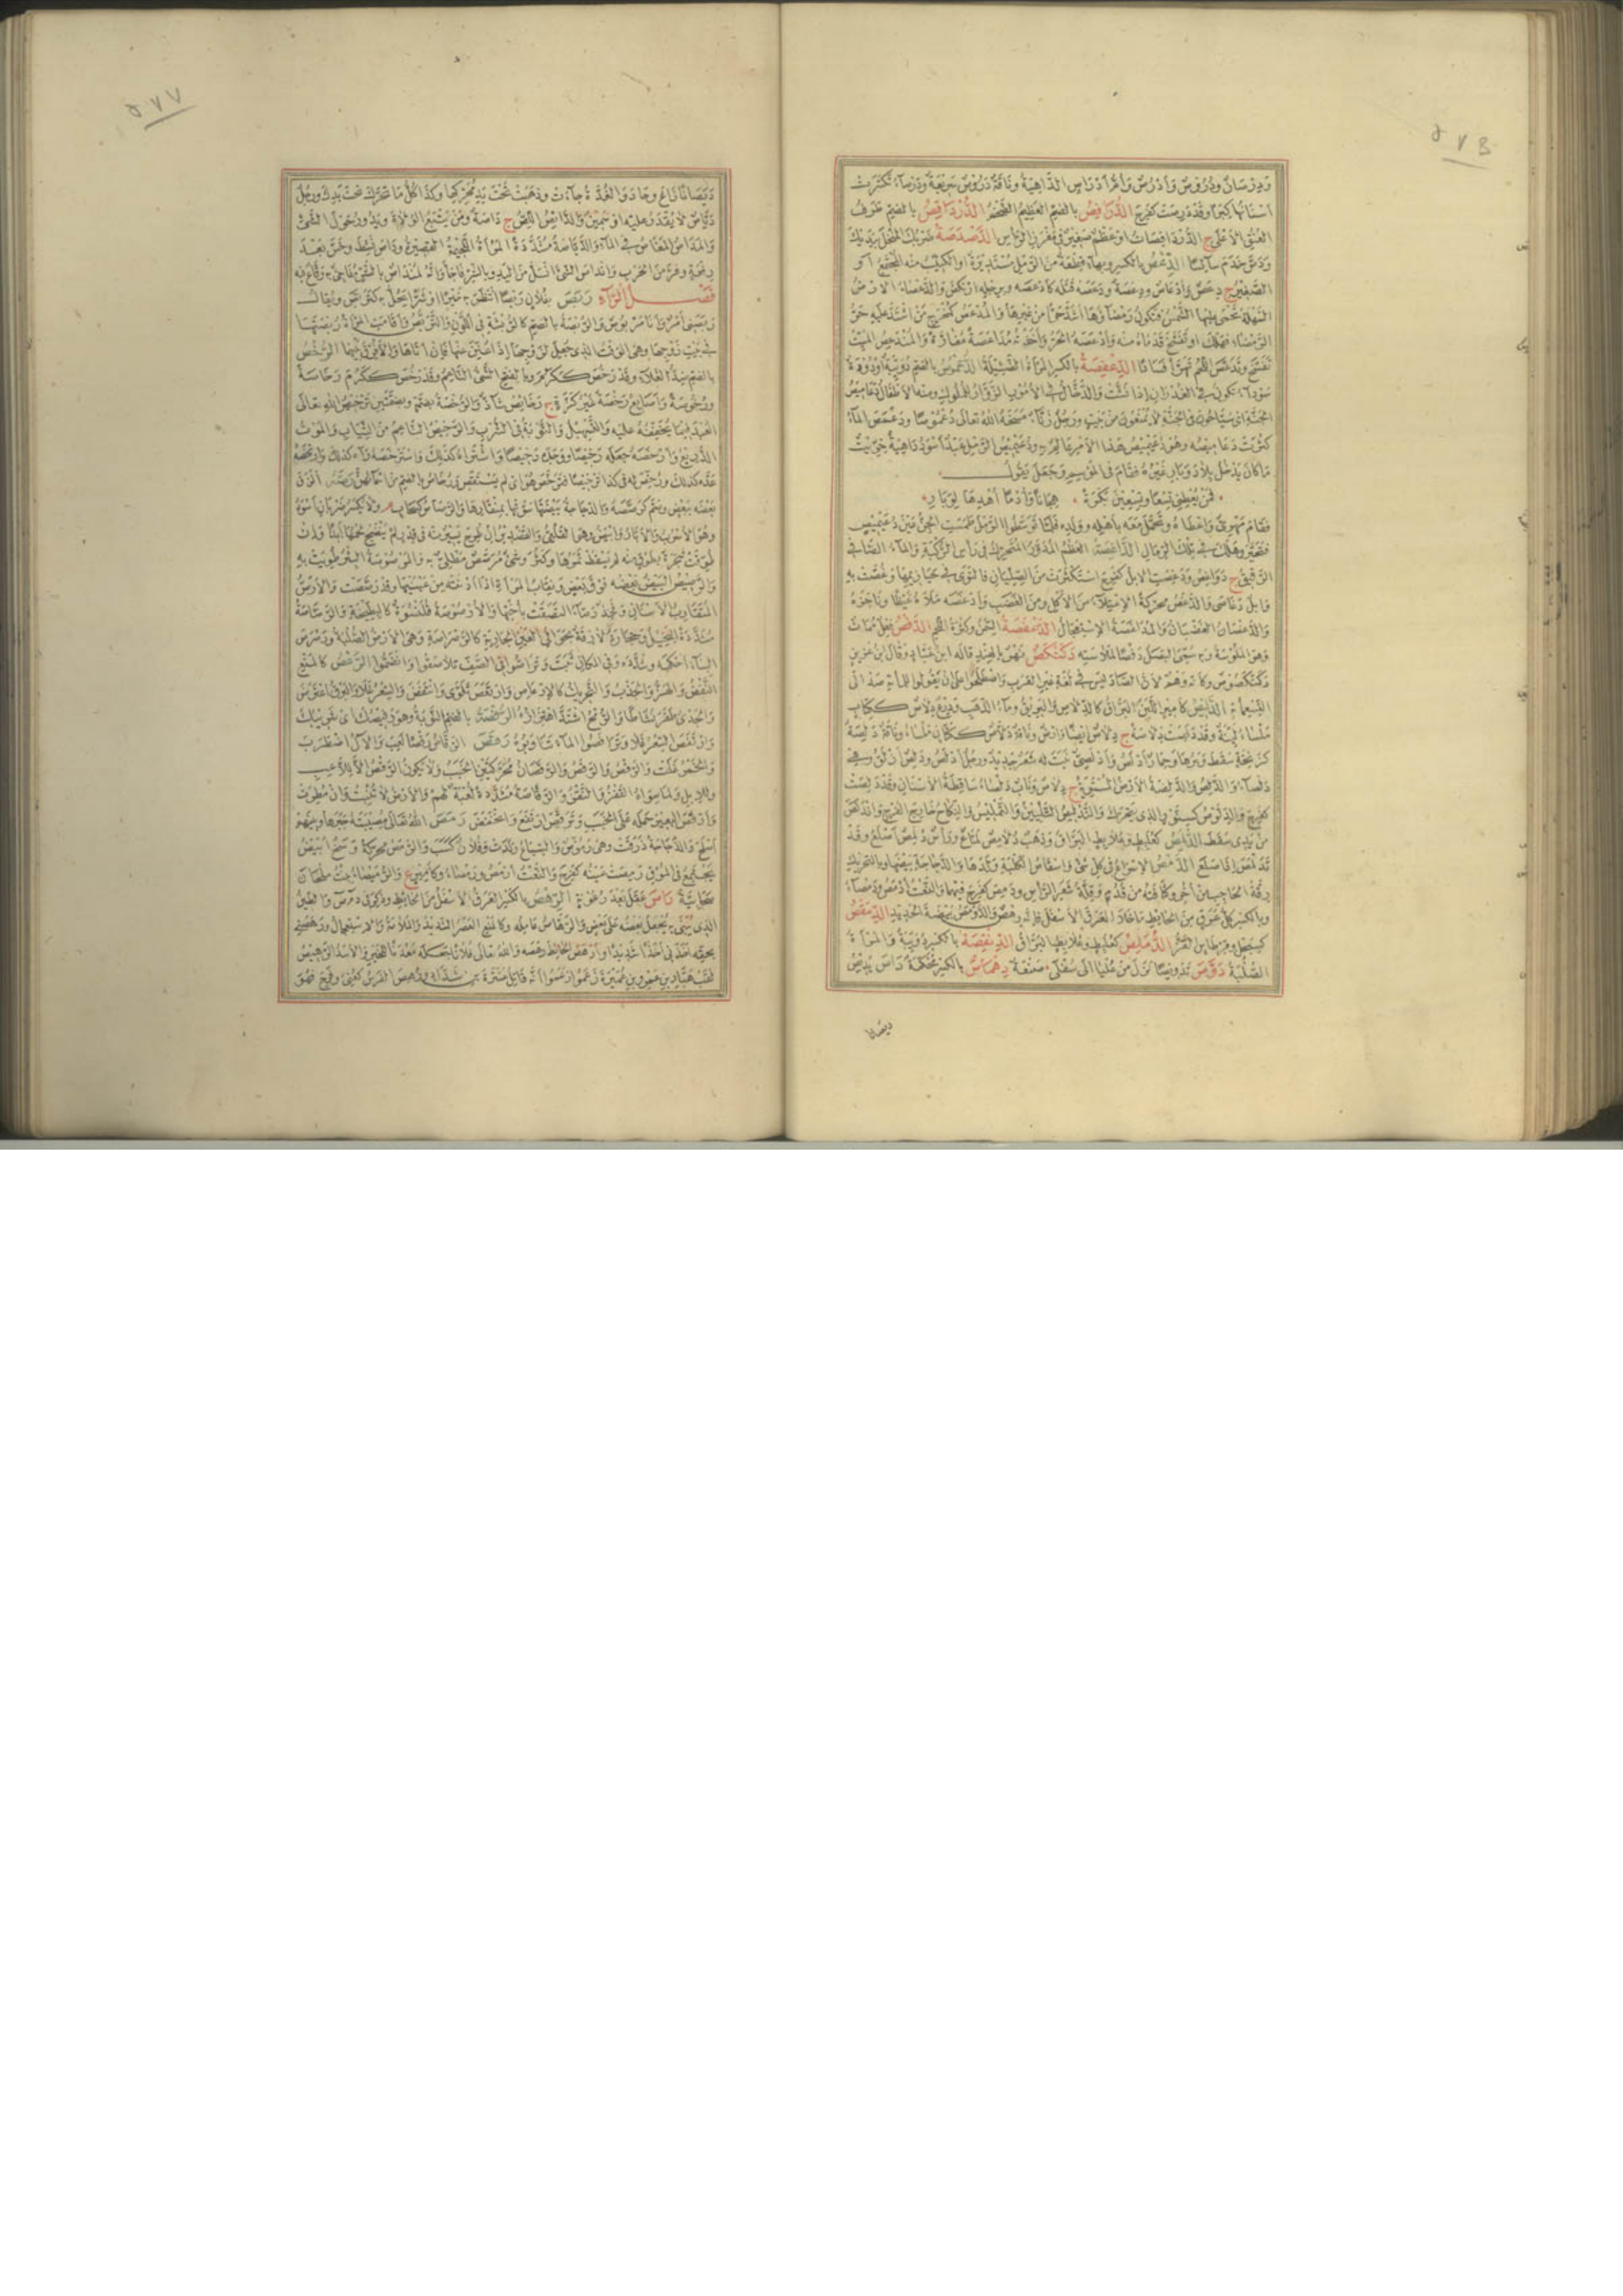 ودرصان ودروص وأدرص وأم أدراص الداهية وناقة دروص سريعة ودرصاء تكثرت
أسنانها كبرا وقد درصت كفرح الدرافص بالضم العظيم الضخم الدرداقص بالضم طرف
العنق الأعلى ج الدرداقصات أو عظم صغير في مغرز الرأس الدصدصة ضربك المنخل بيديك
ودص خدم سائسا الدعص بالكسر وبهاء قطعة من الرمل مستديرة أو الكثيب منه المجتمع أو
الصغير ج دعص وأدعاص ودعصة ودعصه قتله كأدعصه وبرجله ارتكض والدعصاء الأرض
السهلة تحمى عليها الشمس فتكون رمضاؤها أشد حرا من غيرها والمدعص كمخرج من اشتد عليه حر
الرمضاء فهلك أو تفسخ قدماه منه وأدعصه الحر وأخذته مداعصة مفازة والمندعص الميت
تفسخ وتدعص اللحم تهرأ فسادا الدعفصة بالكسر المرأة الضئيلة الدعموص بالضم دويبة أو دودة
سوداء تكون في الغدران إذا نشت والدخال في الأمور الزوار للملوك ومنه الأطفال دعاميص
الجنة أي سياحون في الجنة لا يمنعون من بيت ورجل زناء مسخه الله تعالى دعموصا ودعمص الماء
كثرت دعاميصه وهو دعيميص هذا الأمر عالم به ودعيميص الرمل عبد أسود داهية خريت
ما كان يدخل بلاد وبار غيره فقام في الموسم وجعل يقول
فمن يعطني تسعا وتسعين بكرة هجانا وأدما أهدها لوبار
فقام مهري وأعطاه وتحمل معه بأهله وولده فلما توسطوا الرمل طمست الجن عين دعيميص
فتحير وهلك في تلك الرمال الداغصة العظم المدور المتحرك في رأس الركبة والماء الصافي
الرقيق ج دواغص ودغصت الإبل كفرح استكثرت من الصليان فالتوى في حيازيمها وغصت به
وإبل دغاصى والدغص محركة الامتلاء من الأكل ومن الغضب وأدغصه ملأه غيظا وناجزه
والدغصان الغضبان والمداغصة الاستعجال الدغفصة السمن وكثرة اللحم الدفص فعل ممات
وهو الملوسة وبه سمي البصل دفصا لملاسته دكنكص نهر بالهند قاله ابن عباد وقال ابن عزيز
دكنكصوص وكأنه وهم لأن الصاد ليس في لغة غير العرب واصطلحوا على أن يقولوا للمائة صد أي
التسعمائة الدليص كأمير اللين البراق كالدلاص والبريق وماء الذهب ودرع دلاص ككتاب
ملساء لينة وقد دلصت دلاصة ج دلاص أيضا وأرض وناقة دلاص ككتاب ملساء وناقة دلصة
كزنخة سقط وبرها وحمار أدلص وأدلصي نبت له شعر جديد ورجل أدلص ودلص أزلق وهي
دلصاء والدلص والدلصة الأرض المستوية ج دلاص وناب دلصاء ساقطة الأسنان وقد دلصت
كفرح والدلوص كسنور الذي يتحرك والتدليص التليين والتمليس والنكاح خارج الفرج واندلص
من يدي سقط الدلمص كعلبط وعلابط البراق وذهب دلامص لماع ورأس دلمص أصلع وقد
تدلمص إذا صلع الدمص الإسراع في كل شيء وإسقاط الكلبة ولدها والدجاجة بيضها وبالتحريك
رقة الحاجب من أخر وكثافته من قدم وقلة شعر الرأس ودمص كفرح فيهما والنعت أدمص ودمصاء
وبالكسر كل عرق من الحائط ما خلا العرق الأسفل فإنه رهص والدومص بيضة الحديد الدمقص
كسبحل وقرطاس القز الدملص كعلبط وعلابط البراق الدنفصة بالكسر دويبة والمرأة
الضئيلة دوص تدويصا نزل من عليا إلى سفلى صنعة دهماص بالكسر محكمة داص يديص
ديصانا
ديصانا زاغ وحاد والغدة جاءت وذهبت تحت يد محركها وكذا كل ما تحرك تحت يدك ورجل
دياص لا يقدر عليه أو سمين والدائص اللص ج داصة ومن يتبع الولاة ويدور حول الشيء
والمداص المغاص في الماء والدياصة مشددة المرأة اللحيمة القصيرة وداص نشط وخس بعد
رفعة وفر من الحرب وانداص الشيء انسل من اليد وبالشر فاجأ وإنه لمنداص بالشر مفاجئ به وقاع فيه
فصل الراء ربص بفلان ربصا انتظر به خيرا أو شرا يحل به كتربص ويقال
ربصني أمر وأنا مربوص والربصة بالضم كالربشة في اللون والتربص وأقامت المرأة ربصتها
في بيت زوجها وهي الوقت الذي جعل لزوجها إذا عنن عنها فإن أتاها وإلا فرق بينهما الرخص
بالضم ضد الغلاء وقد رخص ككرم وبالفتح الشيء الناعم وقد رخص ككرم رخاصة
ورخوصة وأصابع رخصة غير كزة ج رخائص شاذ والرخصة بضم وبضمتين ترخيص الله تعالى
العبد فيما يخففه عليه والتسهيل والنوبة في الشرب والرخيص الناعم من الثياب والموت
الذريع وأرخصه جعله رخيصا ووجده رخيصا واشتراه كذلك واسترخصه رآه كذلك وارتخصه
عده كذلك ورخص له في كذا ترخيصا فترخص هو أي لم يستقص ورخاص بالضم من أسمائهن رصه ألزق
بعضه ببعض وضم كرصصه والدجاجة بيضتها سوتها بمنقارها والرصاص كسحاب م ولا يكسر ضربان أسود
وهو الأسرب والأبار وأبيض وهو القلعي والقصدير إن طرح يسير منه في قدر لم ينضج لحمها أبدا وإن
طوقت شجرة بطوق منه لم يسقط ثمرها وكثر وشيء مرصص مطلي به والمرصوصة البئر طويت به
والرصيص البيض بعضه فوق بعض ونقاب المرأة إذا أدنته من عينيها وقد رصصت والأرص
المتقارب الأسنان وفخذ رصاء التصقت بأختها والأرصوصة قلنسوة كالبطيخة والرصاصة
مشددة البخيل وحجارة لازقة بحوالي العين الجارية كالرصراصة وهي الأرض الصلبة ورصرص
البناء أحكمه وشدده وفي المكان ثبت وتراصوا في الصف تلاصقوا وانضموا الرعص كالمنع
النفض والهز والجذب والتحريك كالإرعاص وارتعص تلوى وانتفض والسعر غلا والبرق اعترص
والجدي طفر نشاطا والرمح اشتد اهتزازه الرفصة بالضم النوبة وهو رفيصك أي شريبك
وارتفص السعر غلا وترافصوا الماء تناوبوه رقص الرقاص رقصا لعب والآل اضطرب
والخمر غلت والرقص والرقص والرقصان محركتين الخبب ولا يكون الرقص إلا للاعب
وللإبل ولما سواه القفز والنقز والرقاصة مشددة لعبة لهم والأرض لا تنبت وإن مطرت
وأرقص البعير حمله على الخبب وترقص ارتفع وانخفض رمص الله تعالى مصيبته جبرها وبينهم
أصلح والدجاجة ذرقت وهي رموص والسباع ولدت وفلان كسب والرمص محركة وسخ أبيض
يجتمع في الموق رمصت عينه كفرح والنعت أرمص ورمصاء وكأمير ع والرميصاء بنت ملحان
صحابية راص عقل بعد رعونة الرهص بالكسر العرق الأسفل من الحائط والطين
الذي يبنى به يجعل بعضه على بعض والرهاص عامله وكالمنع العصر الشديد والملامة والاستعجال ورهصني
بحقه أخذني أخذا شديدا وأرهص الحائط رهصه والله تعالى فلانا جعله معدنا للخير والأسد الرهيص
لقب هبار بن عمرو بن عميرة زعموا أنه قاتل عنترة بن شداد ورهص الفرس كعني وفرح فهو